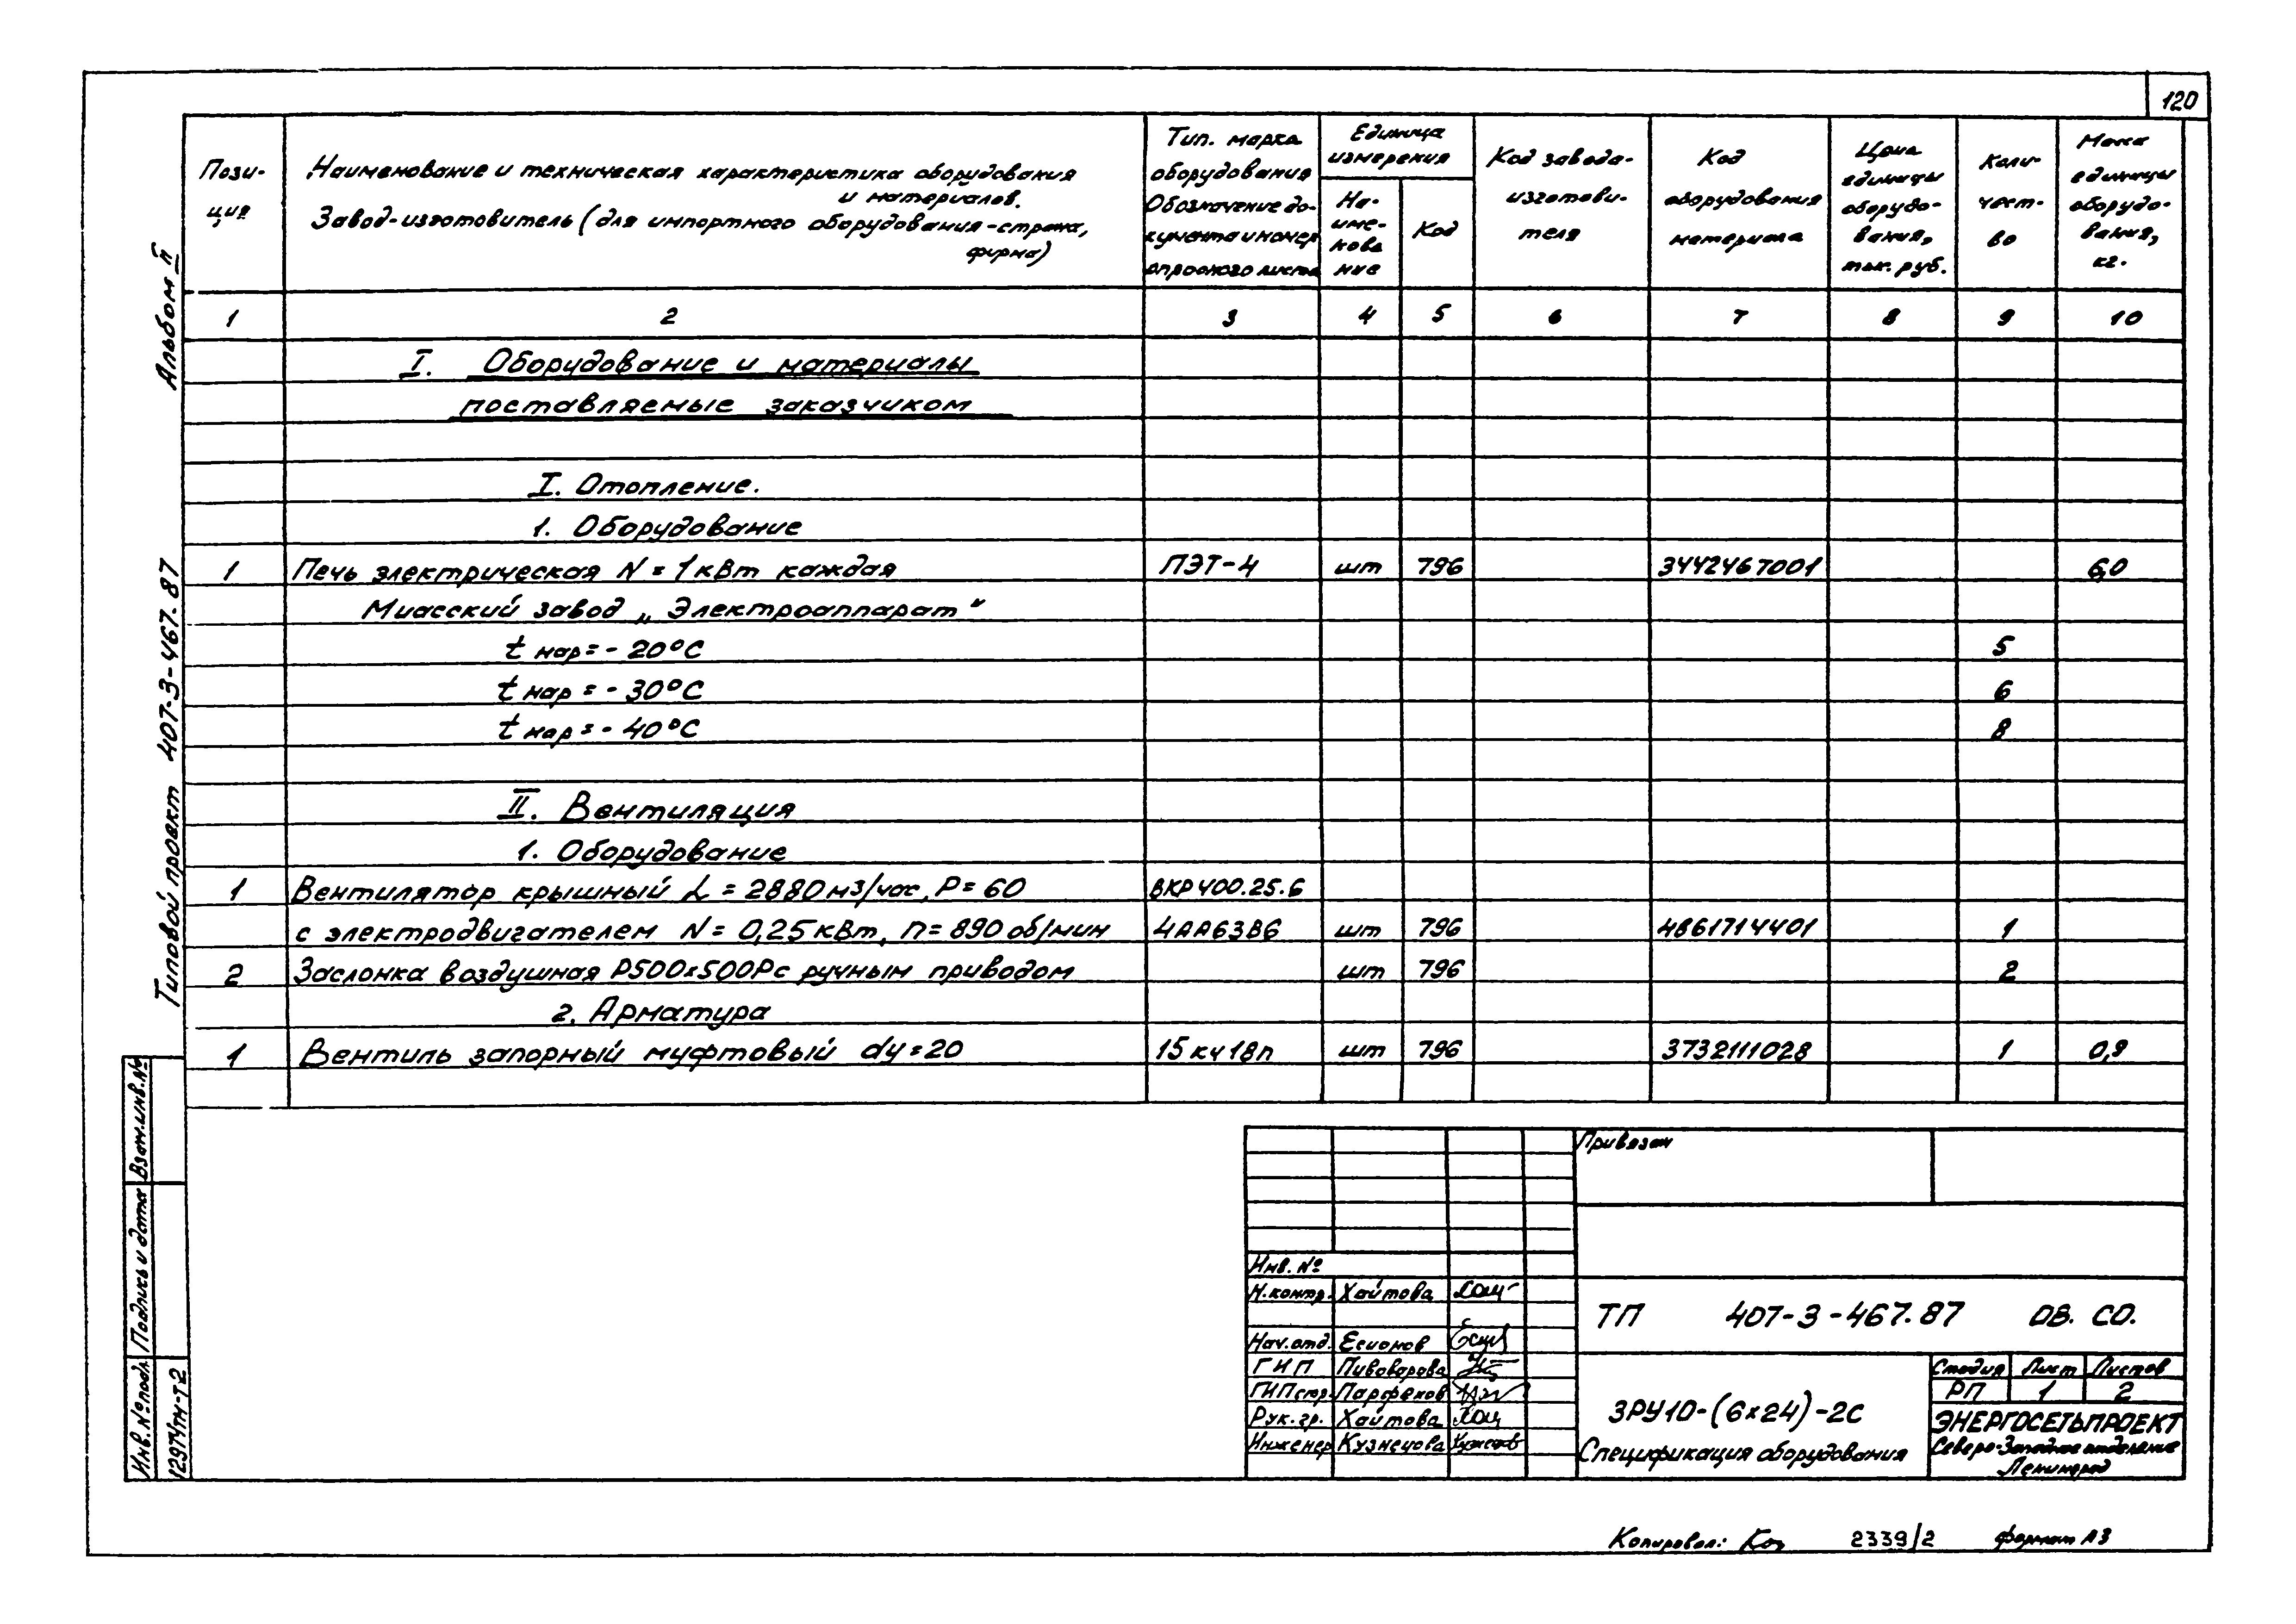 120
Пози-
ция
Наименование и техническая характеристика оборудования
и материалов.
Завод-изготовитель (для импортного оборудования-страна,
фирма)
Тип. марка
оборудования
Обозначение до-
кумента и номер
опросного листа
Единица
измерения
На-
име-
нова
ние
Код
Код завода-
изготови-
теля
Код
оборудования
материала
Цена
единицы
оборудо-
вания,
тыс. руб.
Коли-
чест-
во
Масса
единицы
оборудо-
вания,
кг.
1 2 3 4 5 6 7 8 9 10
I. Оборудование и материалы
поставляемые заказчиком
I. Отопление.
1. Оборудование
1 Печь электрическая N = 1 кВт каждая ПЭТ-4 шт 796 3442467001 6,0
Миасский завод „Электроаппарат"
t нар = - 20°С 5
t нар = - 30°С 6
t нар = - 40°С 8
II. Вентиляция
1. Оборудование
1 Вентилятор крышный L = 2880 м3/час, P = 60 ВКР400.25.6
с электродвигателем N = 0,25 кВт, n = 890 об/мин 4АА63В6 шт 796 4861714401 1
2 Заслонка воздушная Р500х500Р с ручным приводом шт 796 2
2. Арматура
1 Вентиль запорный муфтовый dy = 20 15кч18п шт 796 3732111028 1 0,9
Альбом II
Типовой проект 407-3-467.87
Взам.инв.№
Подпись и дата
Инв.№подл.
12974тм-т2
Привязан
Инв. №
Н.контр. Хаитова
Нач.отд. Есионов
ГИП Пивоварова
ГИПстр. Парфенов
Рук.гр. Хаитова
Инженер Кузнецова
ТП 407-3-467.87 ОВ. СО.
ЗРУ10-(6х24)-2С
Спецификация оборудования
Стадия Лист Листов
РП 1 2
ЭНЕРГОСЕТЬПРОЕКТ
Северо-Западное отделение
Ленинград
Копировал: 2339/2 формат А3